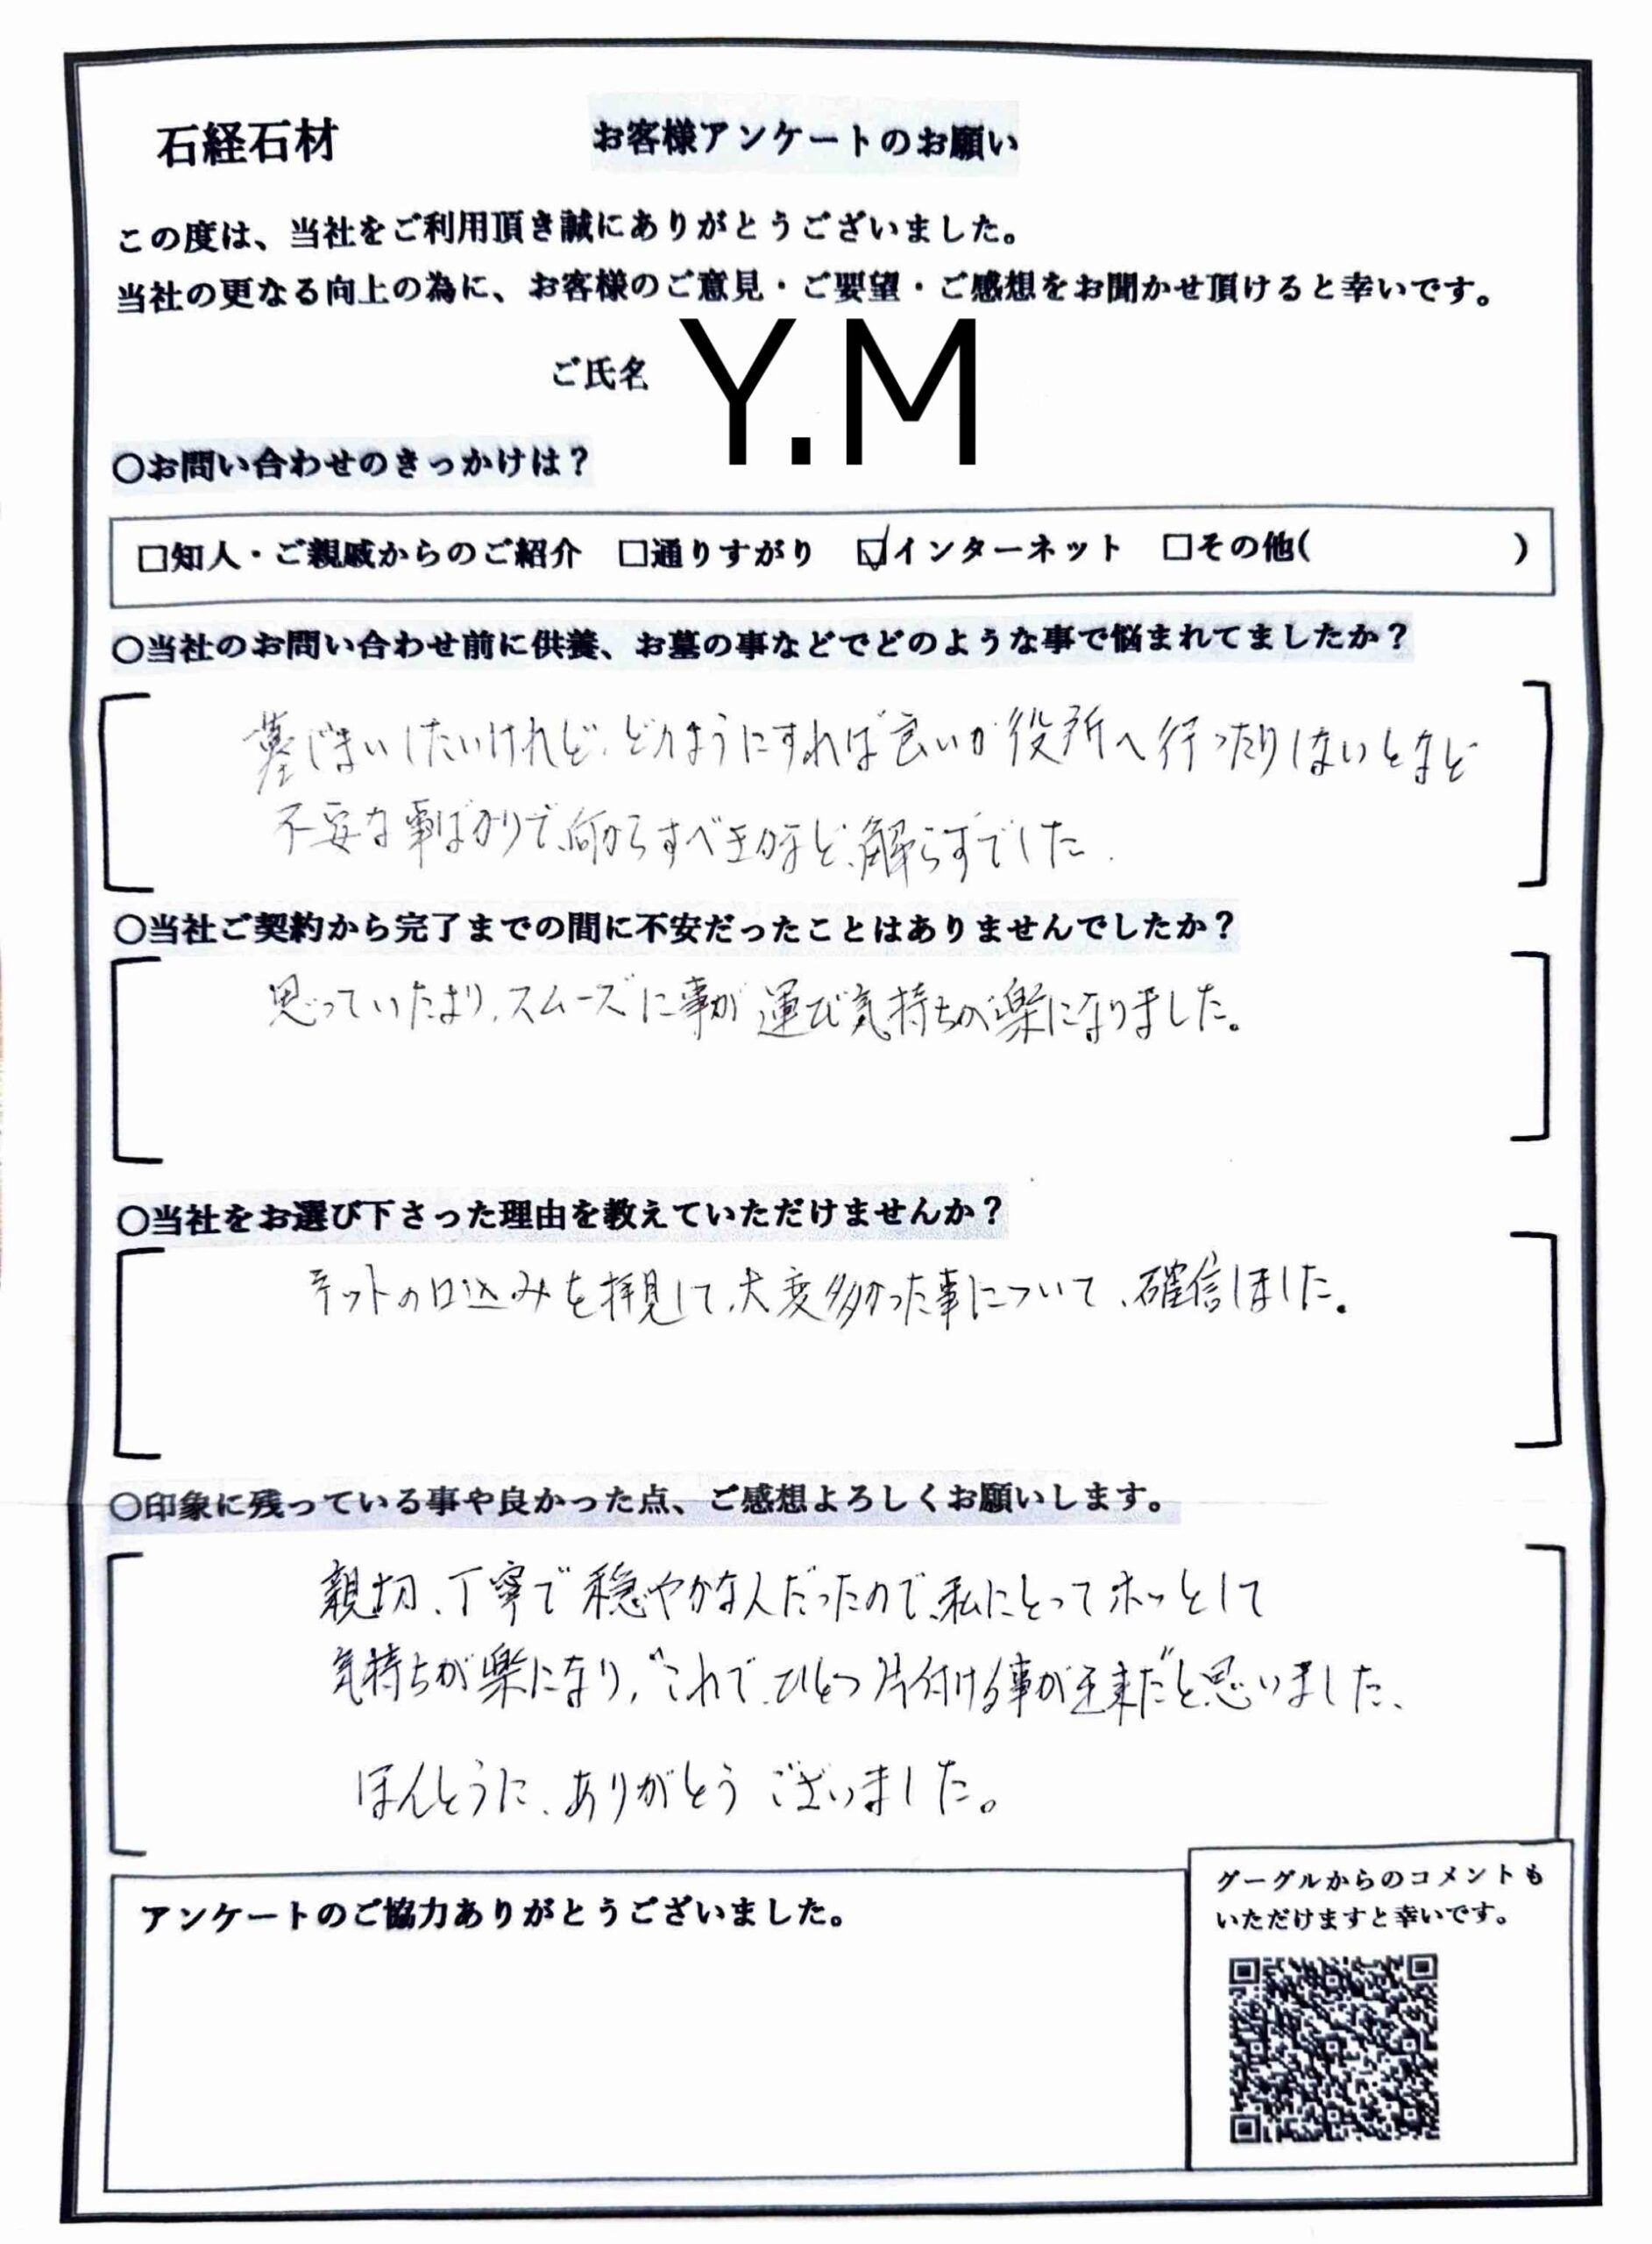 石経石材 お客様アンケートのお願い
この度は、当社をご利用頂き誠にありがとうございました。
当社の更なる向上の為に、お客様のご意見・ご要望・ご感想をお聞かせ頂けると幸いです。
ご氏名 Y.M
○お問い合わせのきっかけは？
□知人・ご親戚からのご紹介 □通りすがり ☑インターネット □その他( )
○当社のお問い合わせ前に供養、お墓の事などでどのような事で悩まれてましたか？
墓じまいしたいけれど、どのようにすれば良いか役所へ行ったりしないとなど
不安な事ばかりで、何からすべきかなど、解らずでした.
○当社ご契約から完了までの間に不安だったことはありませんでしたか？
思っていたより、スムーズに事が運び気持ちが楽になりました。
○当社をお選び下さった理由を教えていただけませんか？
ネットの口込みを拝見して、大変多かった事について、確信しました。
○印象に残っている事や良かった点、ご感想よろしくお願いします。
親切、丁寧で穏やかな人だったので、私にとってホッとして
気持ちが楽になり、"これで、ひとつ片付ける事が出来だ"と思いました、
ほんとうに、ありがとうございました。
アンケートのご協力ありがとうございました。
グーグルからのコメントも
いただけますと幸いです。